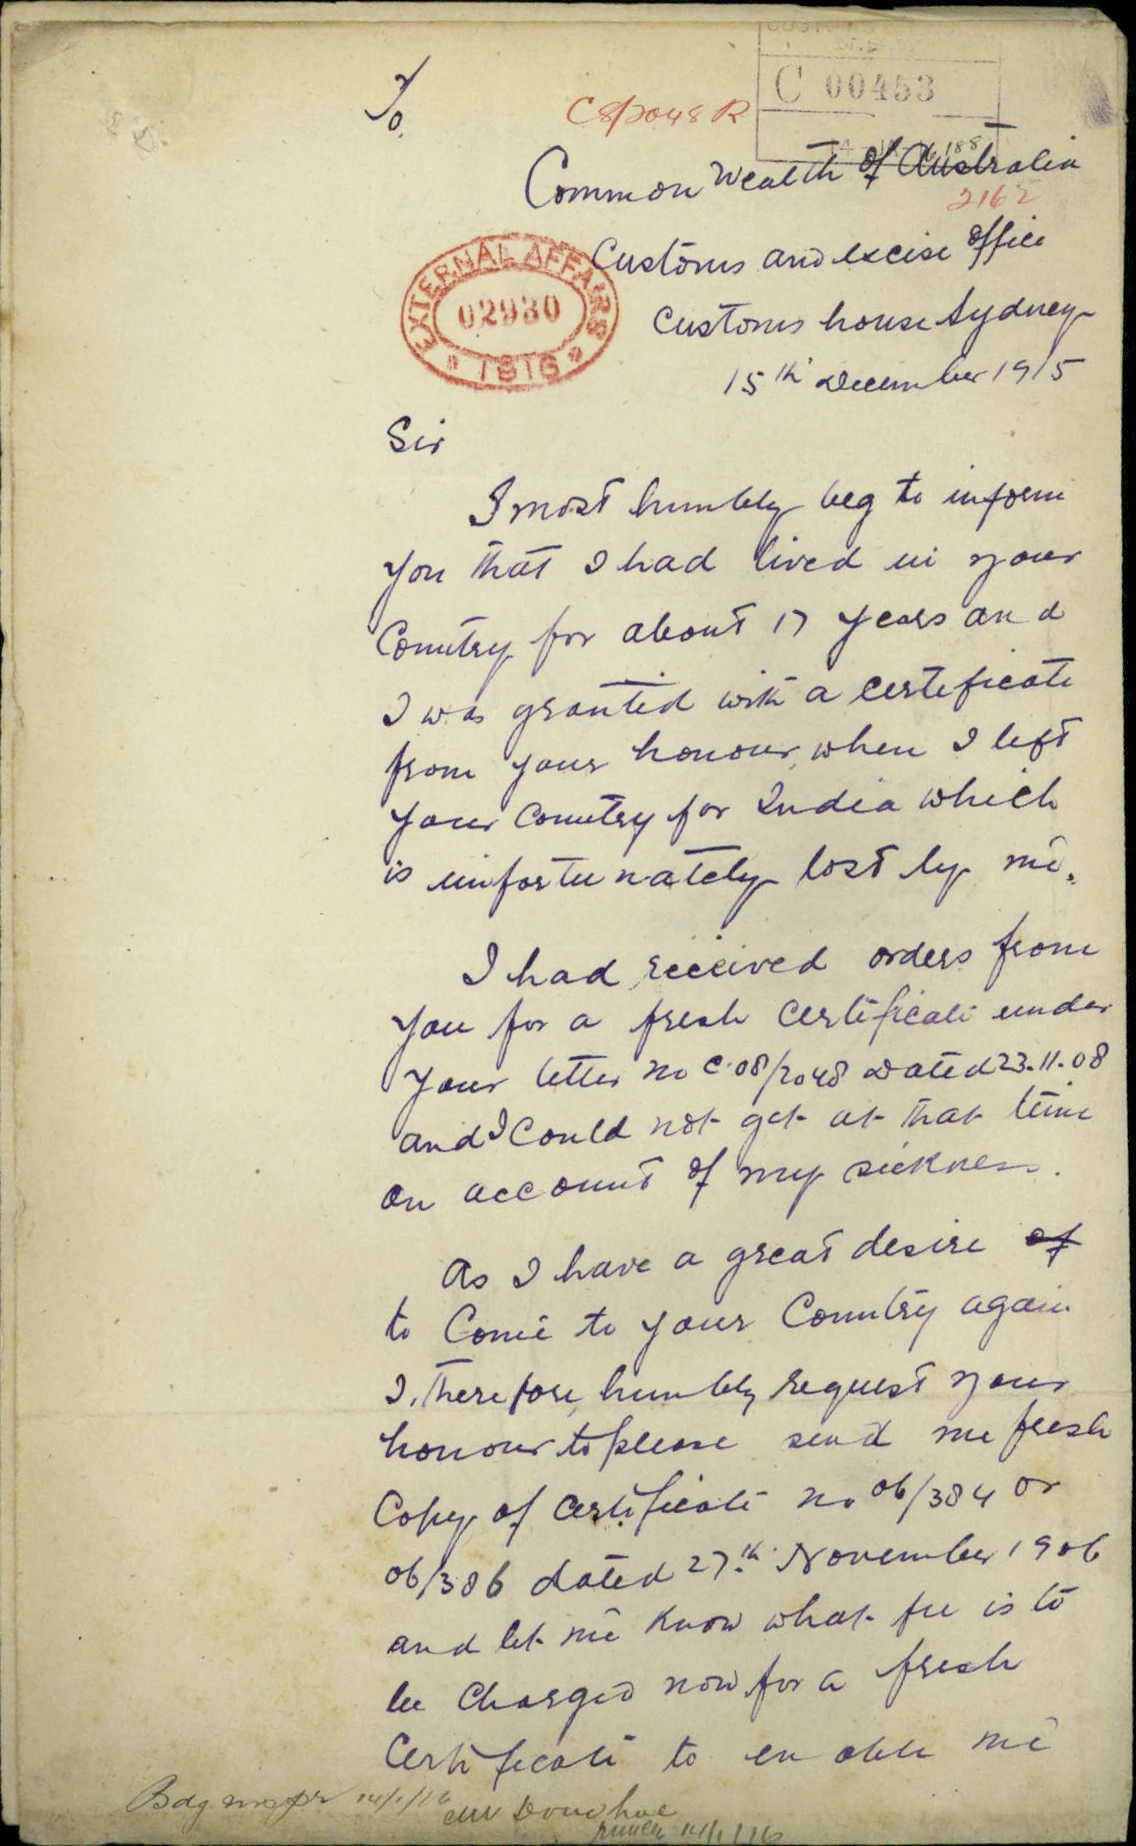 To
C8/2048 R
C 00453
Common Wealth of Australia
2165
Customs and excise office
EXTERNAL AFFAIRS
02930
1916
Customs house Sydney
15th December 1915
Sir
I most humbly beg to inform
you that I had lived in your
Country for about 17 years and
I was granted with a certeficate
from your honour, when I left
your Country for India which
is unfortunately lost by me.
I had received orders from
you for a fresh certificate under
your letter no C.08/2048 dated 23.11.08
and I could not get at that time
on account of my sickness.
As I have a great desire of
to Come to your Country again
I, therefore, humbly request your
honour to please send me fresh
Copy of Certificate no 06/384 or
06/386 dated 27th November 1906
and let me know what fee is to
be Charged now for a fresh
Certificate to enable me
14/1/16
Mr Donohue
14/1/16